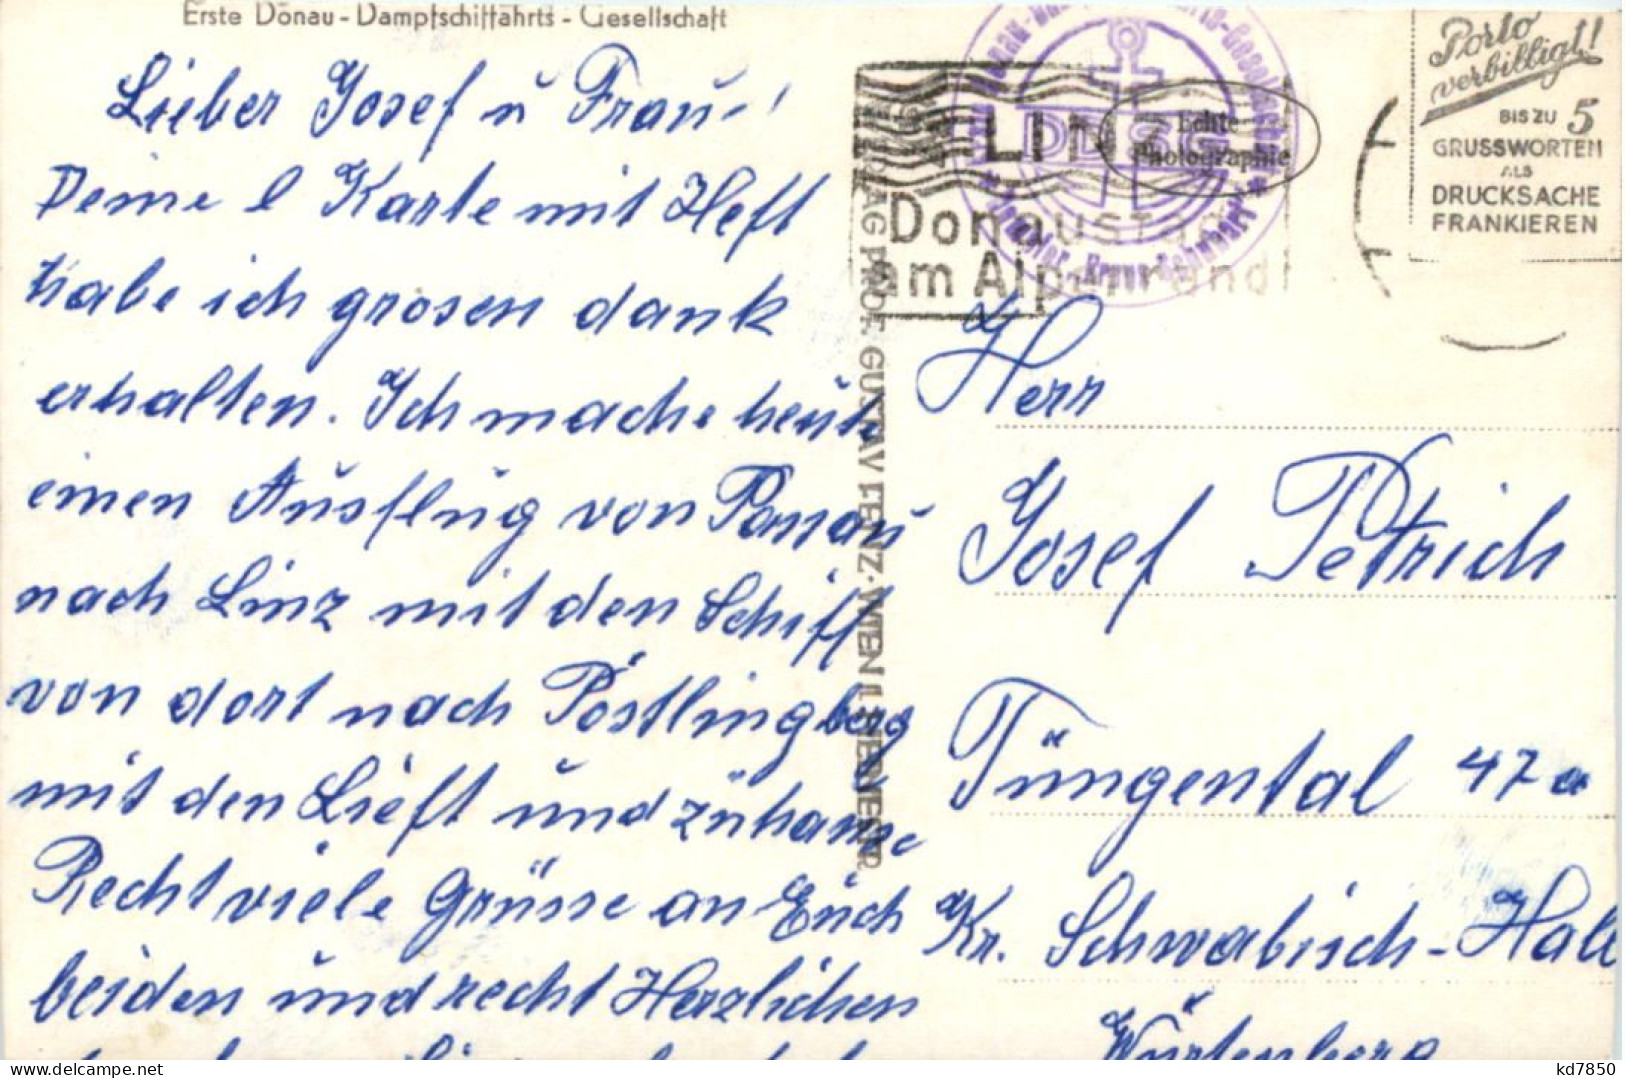 Erste Donau-Dampfschiffahrts-Gesellschaft
Lieber Josef u Frau!
Deine l Karte mit Heft
habe ich grosen dank
erhalten. Ich mache heute
einen Ausflug von Passau
nach Linz mit den Schiff
von dort nach Pöstlingberg
mit den Lieft und zuhause
Recht viele Grüsse an Euch
beiden und recht Herzlichen
VERLAG PROF. GUSTAV LENZ · WIEN
LINZ
Donaustadt
am Alpenrand
DDSG
Echte
Photographie
Porto
verbilligt!
BIS ZU 5
GRUSSWORTEN
ALS
DRUCKSACHE
FRANKIEREN
Herr
Josef Petrich
Tüngental 47a
Kr. Schwäbisch-Hall
Würtenberg
kd7850